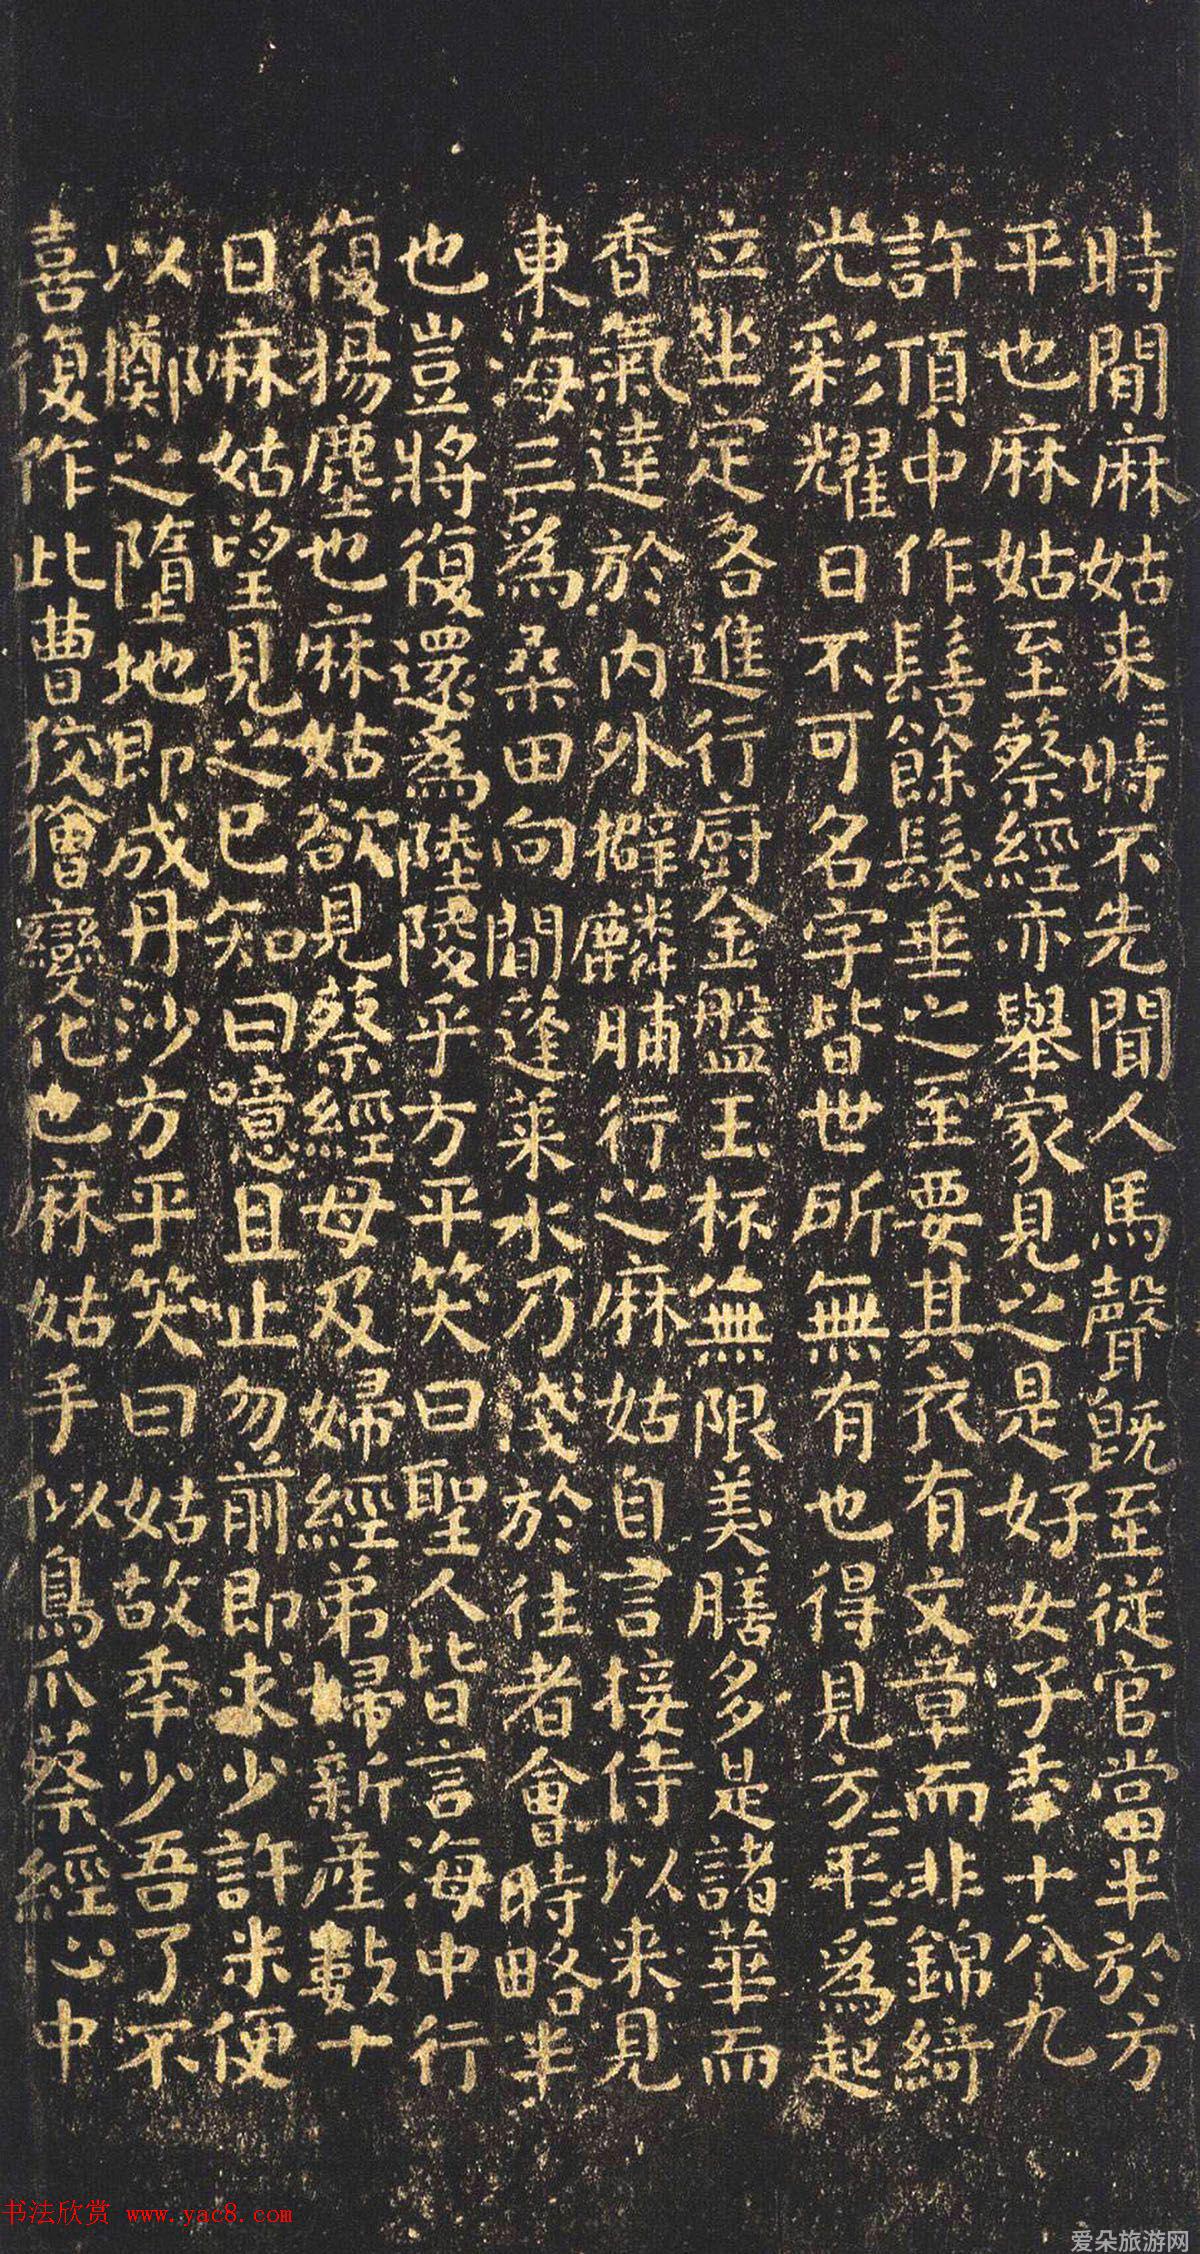 時間麻姑来〻時不先聞人馬聲旣至從官當半於方
平也麻姑至蔡經亦舉家見之是好女子秊十八九
許頂中作髻餘髮垂之至要其衣有文章而非錦綺
光彩耀日不可名字皆世所無有也得見方〻平〻爲起
立坐定各進行廚金盤玉杯無限美膳多是諸華而
香氣達於內外擗麟脯行之麻姑自言接侍以来見
東海三爲桑田向間蓬萊水乃淺於往者會時略半
也豈將復還爲陸陵乎方平笑曰聖人皆言海中行
復揚塵也麻姑欲見蔡經母及婦經弟婦新産數十
日麻姑望見之已知曰噫且止勿前即求少許米便
以擲之墮地即成丹沙方平笑曰姑故秊少吾了不
喜復作此曹狡獪變化也麻姑手似鳥爪蔡經心中
书法欣赏 www.yac8.com
爱朵旅游网